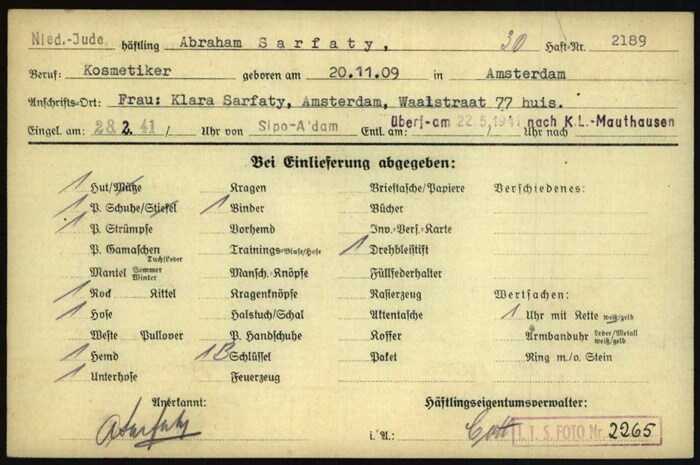 Nied.-Jude, häftling Abraham Sarfaty, 30 Haft-Nr. 2189
Beruf: Kosmetiker geboren am 20.11.09 in Amsterdam
Anschrifts-Ort: Frau: Klara Sarfaty, Amsterdam, Waalstraat 77 huis.
Eingel. am: 28.2.41 Uhr von Sipo-A'dam Entl. am: Überf.am 22.5.1941 Uhr nach K.L.-Mauthausen
Bei Einlieferung abgegeben:
1 Hut/Mütze Kragen Brieftasche/Papiere Verschiedenes:
1 P. Schuhe/Stiefel 1 Binder Bücher
1 P. Strümpfe Vorhemd Inv.-Vers.-Karte
P. Gamaschen Tuch/Leder Trainings-Bluse/Hose 1 Drehbleistift
Mantel Sommer Winter Mansch.-Knöpfe Füllfederhalter
1 Rock Kittel Kragenknöpfe Rasierzeug Wertsachen:
1 Hose Halstuch/Schal Aktentasche 1 Uhr mit Kette weiß/gelb
Weste Pullover P. Handschuhe Koffer Armbanduhr Leder/Metall weiß/gelb
1 Hemd 13 Schlüssel Paket Ring m./o. Stein
1 Unterhose Feuerzeug
Anerkannt: Häftlingseigentumsverwalter:
ASarfaty i. A.: I. T. S. FOTO Nr. 2265